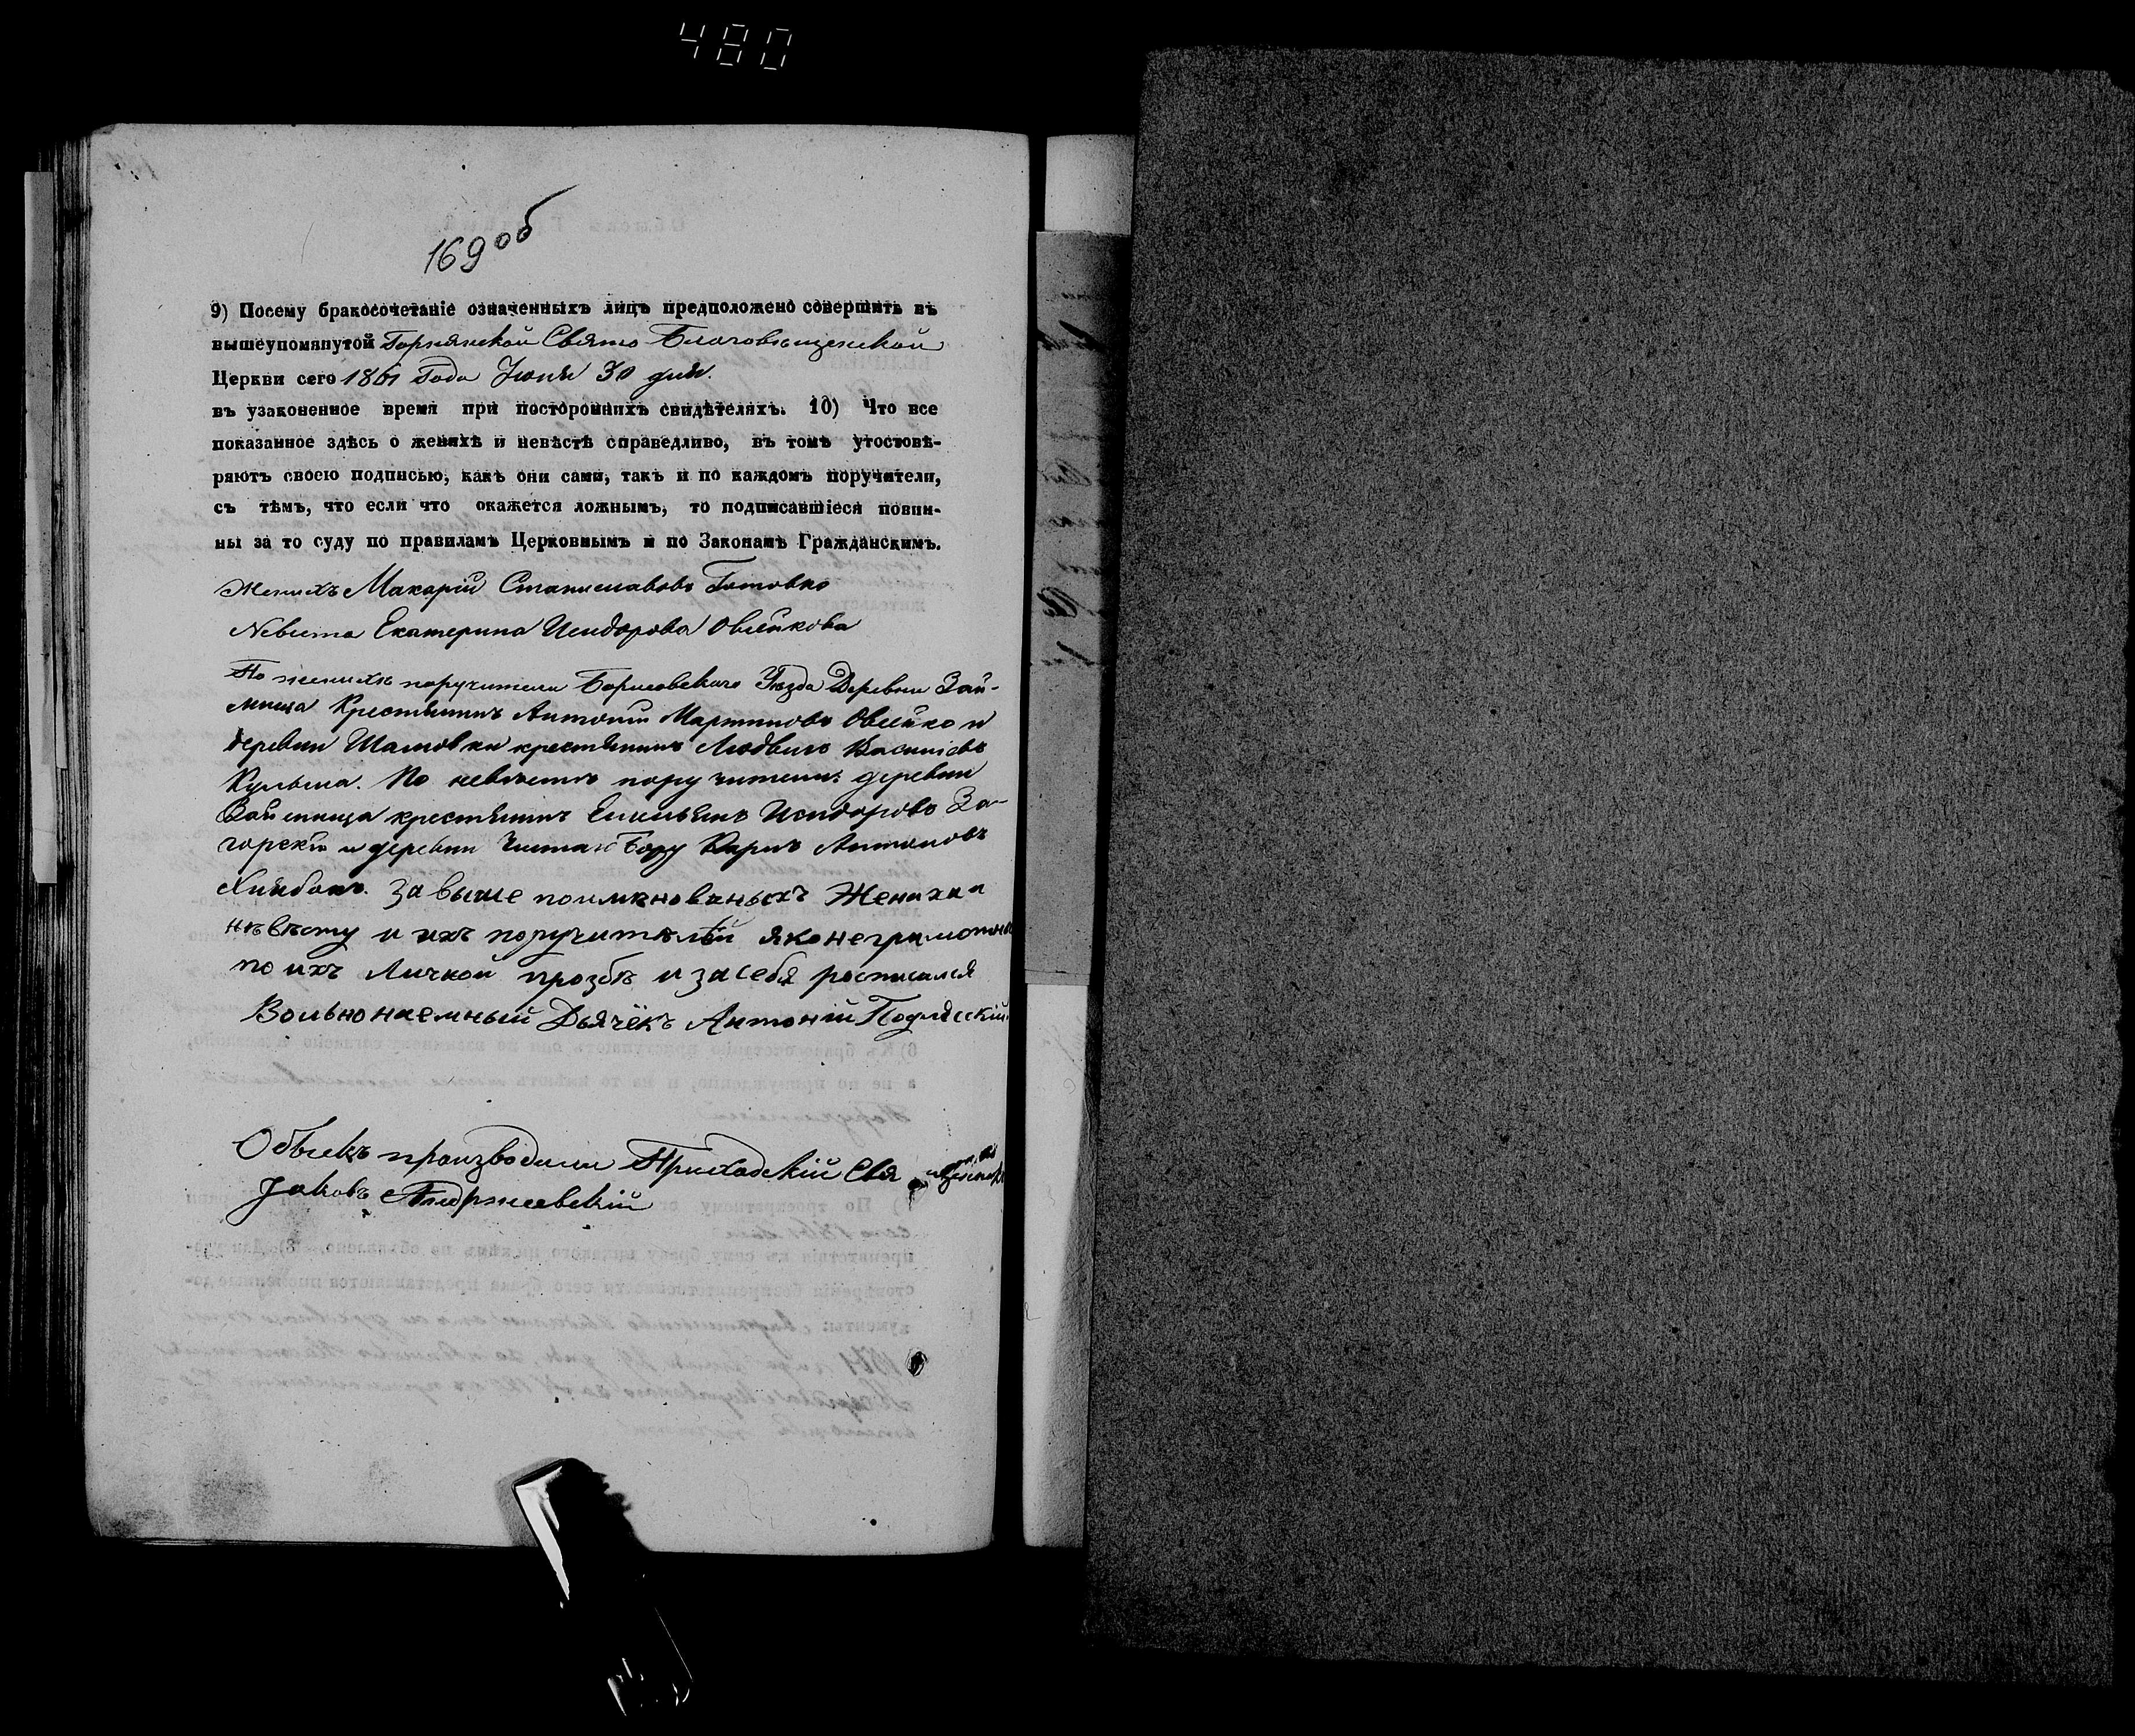 480
169 об
9) Посему бракосочетаніе означенныхъ лицъ предположено совершить въ
вышеупомянутой Горнянской Свято Благовѣщенской
Церкви сего 1861 Года Іюня 30 дня.
въ узаконенное время при постороннихъ свидѣтеляхъ. 10) Что все
показанное здѣсь о женихѣ и невѣстѣ справедливо, въ томъ утостовѣ-
ряютъ своею подписью, какъ они сами, такъ и по каждомъ поручители,
съ тѣмъ, что если что окажется ложнымъ, то подписавшіеся повин-
ны за то суду по правиламъ Церковнымъ и по Законамъ Гражданскимъ.
Женихъ Макарій Станиславовъ Готовко
Невѣста Екатерина Исидорова Овсѣйкова
По женихѣ поручители Борисовскаго Уѣзда Деревни Зай-
мища Крестянинъ Антоній Мартиновъ Овсѣйко и
деревни крестянинъ Людвигъ Василіевъ
Кульша. По невѣстѣ поручители: деревни
Займища крестянинъ Емильянъ Исидоровъ За-
горскій и деревни Бору Антоновъ
За выше поимянованыхъ Жениха и
нѣвѣсту и ихъ поручитѣлѣй яко неграмотныхъ
по ихъ Личной прозбѣ и за себя росписался
Вольнонаемный Дьячёкъ Антоній Подлѣскій
Обыскъ производили Приходскій Священникъ
Іаковъ